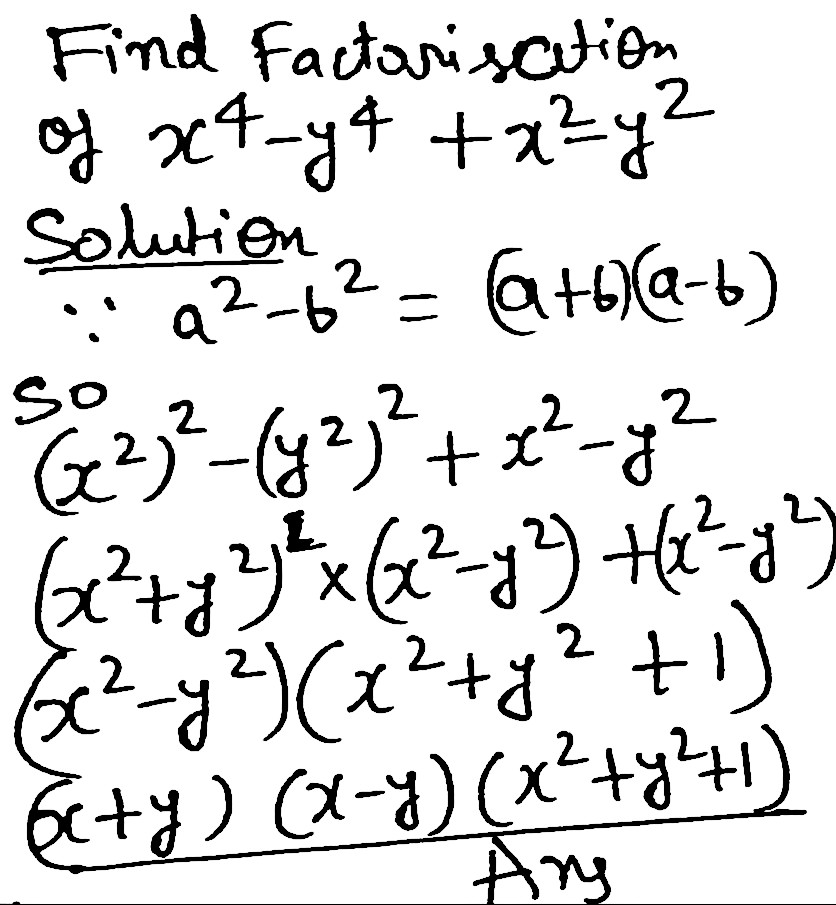 Find Factorisation
of x⁴-y⁴ +x²-y²
Solution
∵ a²-b² = (a+b)(a-b)
so
(x²)²-(y²)² + x²-y²
(x²+y²)¹×(x²-y²) +(x²-y²)
(x²-y²)(x²+y² +1)
(x+y) (x-y) (x²+y²+1)
Ans